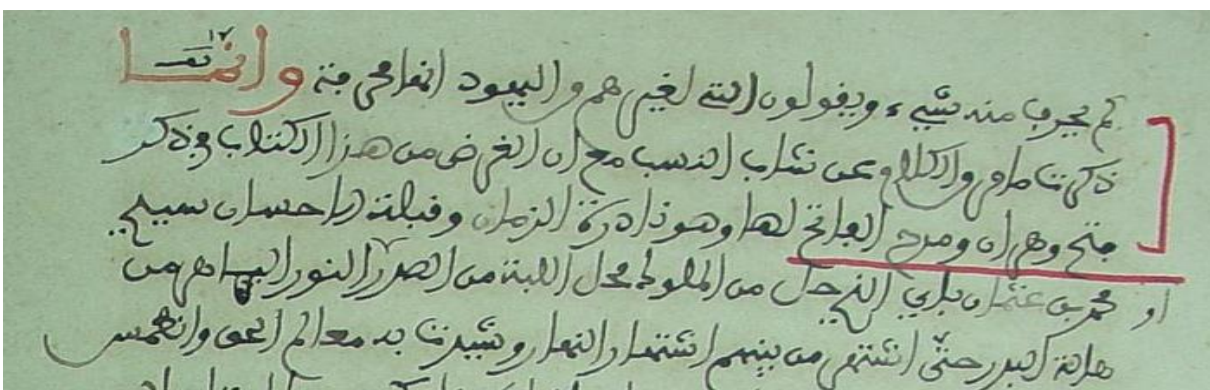 لم يجرب منه شيء ويقولون التي لغيرهم واليهود انها محرفة وانما
ذكرنا ما مر والكلام عن تشاب النسب مع ان الغرض من هذا الكتاب في ذكر
فتح وهران ومدح الفاتح لها وهو نادرة الزمان وقبلة الاحسان سيدي
محمد بن عثمان باي الذي حل من الملوك محل اللبة من الصدر النور الباهر من
هالة البدر حتى اشتهر من بينهم اشتهار النهار وشيدت به معالم الحق وانطمس